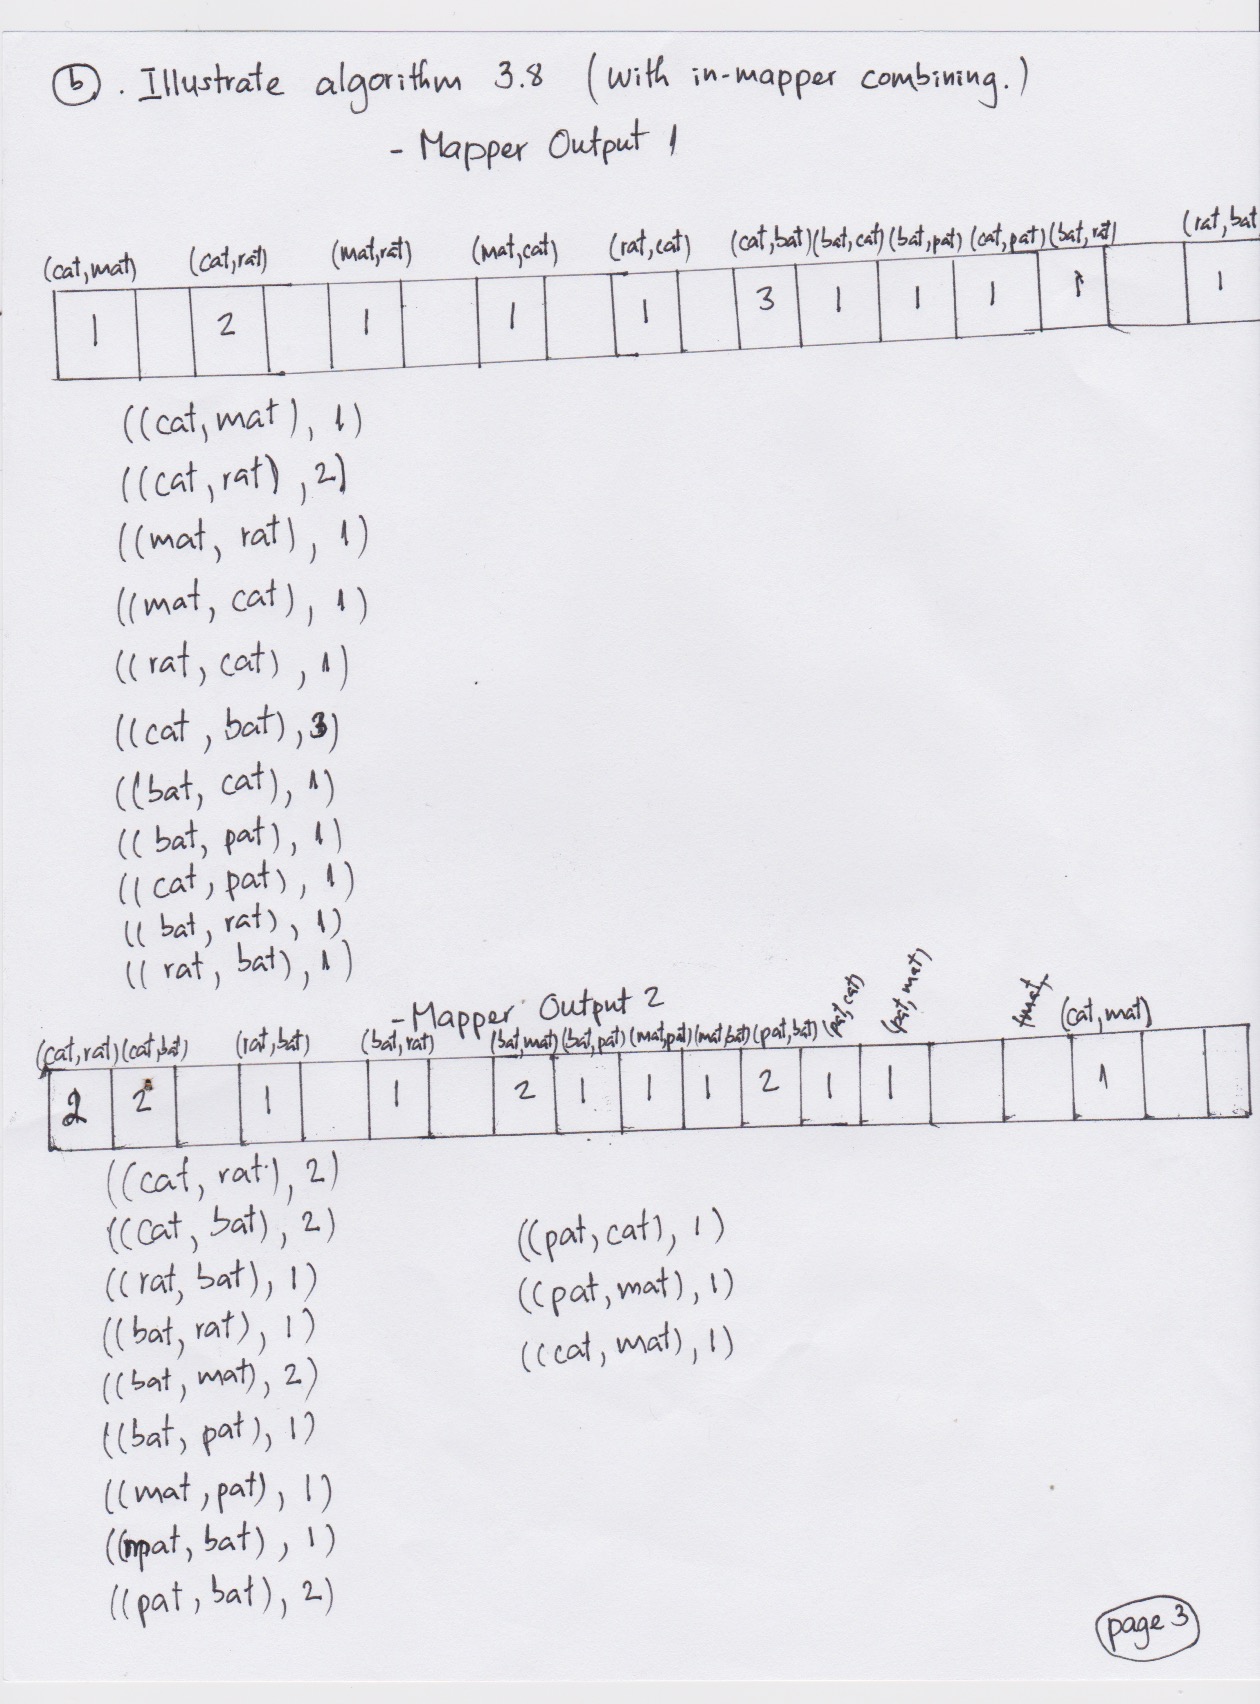 b. Illustrate algorithm 3.8 (with in-mapper combining.)
- Mapper Output 1
(cat,mat) (cat,rat) (mat,rat) (mat,cat) (rat,cat) (cat,bat) (bat,cat) (bat,pat) (cat,pat) (bat,rat) (rat,bat
1 2 1 1 1 3 1 1 1 1 1
((cat,mat), 1)
((cat,rat), 2)
((mat, rat), 1)
((mat, cat), 1)
((rat, cat), 1)
((cat, bat), 3)
((bat, cat), 1)
((bat, pat), 1)
((cat, pat), 1)
((bat, rat), 1)
((rat, bat), 1)
- Mapper Output 2
(cat,rat) (cat,bat) (rat,bat) (bat,rat) (bat,mat) (bat,pat) (mat,pat) (mat,bat) (pat,bat) (pat,cat) (pat,mat) (cat,mat)
2 2 1 1 2 1 1 1 2 1 1 1
((cat, rat), 2)
((cat, bat), 2)
((rat, bat), 1)
((bat, rat), 1)
((bat, mat), 2)
((bat, pat), 1)
((mat, pat), 1)
((mat, bat), 1)
((pat, bat), 2)
((pat, cat), 1)
((pat, mat), 1)
((cat, mat), 1)
page 3